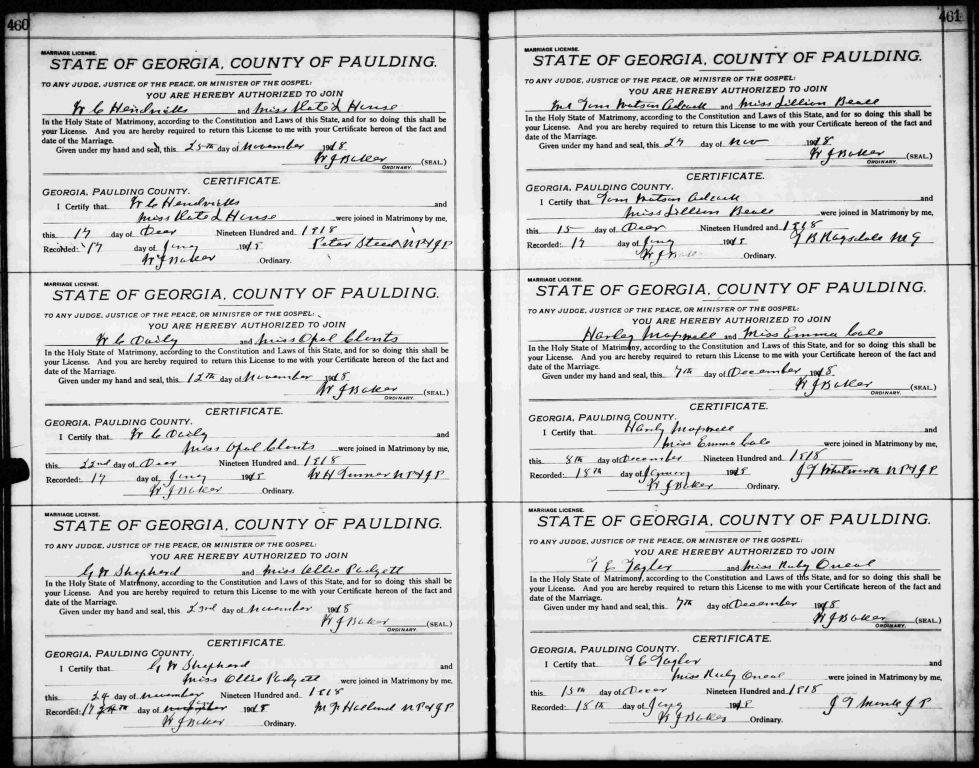 460
MARRIAGE LICENSE.
STATE OF GEORGIA, COUNTY OF PAULDING.
TO ANY JUDGE, JUSTICE OF THE PEACE, OR MINISTER OF THE GOSPEL:
YOU ARE HEREBY AUTHORIZED TO JOIN
W C Hendricks and Miss Kate L House
In the Holy State of Matrimony, according to the Constitution and Laws of this State, and for so doing this shall be
your License. And you are hereby required to return this License to me with your Certificate hereon of the fact and
date of the Marriage.
Given under my hand and seal, this 25th day of November 1918
W J Baker (SEAL.)
ORDINARY.
CERTIFICATE.
GEORGIA, PAULDING COUNTY.
I Certify that W C Hendricks and
Miss Kate L House were joined in Matrimony by me,
this 17 day of Decr Nineteen Hundred and 1918
Recorded: 17 day of Jany 191 Peter Steed N P & J P
W J Baker Ordinary.
MARRIAGE LICENSE.
STATE OF GEORGIA, COUNTY OF PAULDING.
TO ANY JUDGE, JUSTICE OF THE PEACE, OR MINISTER OF THE GOSPEL:
YOU ARE HEREBY AUTHORIZED TO JOIN
W C Daily and Miss Opal Clonts
In the Holy State of Matrimony, according to the Constitution and Laws of this State, and for so doing this shall be
your License. And you are hereby required to return this License to me with your Certificate hereon of the fact and
date of the Marriage.
Given under my hand and seal, this 12th day of November 1918
W J Baker (SEAL.)
ORDINARY.
CERTIFICATE.
GEORGIA, PAULDING COUNTY.
I Certify that W C Daily and
Miss Opal Clonts were joined in Matrimony by me,
this 22nd day of Decr Nineteen Hundred and 1918
Recorded: 17 day of Jany 191 W H Turner N P & J P
W J Baker Ordinary.
MARRIAGE LICENSE.
STATE OF GEORGIA, COUNTY OF PAULDING.
TO ANY JUDGE, JUSTICE OF THE PEACE, OR MINISTER OF THE GOSPEL:
YOU ARE HEREBY AUTHORIZED TO JOIN
G W Shepherd and Miss Ollie Padgett
In the Holy State of Matrimony, according to the Constitution and Laws of this State, and for so doing this shall be
your License. And you are hereby required to return this License to me with your Certificate hereon of the fact and
date of the Marriage.
Given under my hand and seal, this 23rd day of November 1918
W J Baker (SEAL.)
ORDINARY.
CERTIFICATE.
GEORGIA, PAULDING COUNTY.
I Certify that G W Shepherd and
Miss Ollie Padgett were joined in Matrimony by me,
this 24 day of November Nineteen Hundred and 1918
Recorded: 17 day of 191 M F Holland N P & J P
W J Baker Ordinary.
461
MARRIAGE LICENSE.
STATE OF GEORGIA, COUNTY OF PAULDING.
TO ANY JUDGE, JUSTICE OF THE PEACE, OR MINISTER OF THE GOSPEL:
YOU ARE HEREBY AUTHORIZED TO JOIN
Mr Tom Watson Adcock and Miss Lillian Beall
In the Holy State of Matrimony, according to the Constitution and Laws of this State, and for so doing this shall be
your License. And you are hereby required to return this License to me with your Certificate hereon of the fact and
date of the Marriage.
Given under my hand and seal, this 27 day of Nov 1918
W J Baker (SEAL.)
ORDINARY.
CERTIFICATE.
GEORGIA, PAULDING COUNTY.
I Certify that Tom Watson Adcock and
Miss Lillian Beall were joined in Matrimony by me,
this 15 day of Decr Nineteen Hundred and 1918
Recorded: 17 day of Jany 191 J B Ragsdale M G
W J Baker Ordinary.
MARRIAGE LICENSE.
STATE OF GEORGIA, COUNTY OF PAULDING.
TO ANY JUDGE, JUSTICE OF THE PEACE, OR MINISTER OF THE GOSPEL:
YOU ARE HEREBY AUTHORIZED TO JOIN
Harley Maxwell and Miss Emma Cole
In the Holy State of Matrimony, according to the Constitution and Laws of this State, and for so doing this shall be
your License. And you are hereby required to return this License to me with your Certificate hereon of the fact and
date of the Marriage.
Given under my hand and seal, this 7th day of December 1918
W J Baker (SEAL.)
ORDINARY.
CERTIFICATE.
GEORGIA, PAULDING COUNTY.
I Certify that Harly Maxwell and
Miss Emma Cole were joined in Matrimony by me,
this 8th day of December Nineteen Hundred and 1918
Recorded: 18th day of January 191 J T Whitworth N P & J P
W J Baker Ordinary.
MARRIAGE LICENSE.
STATE OF GEORGIA, COUNTY OF PAULDING.
TO ANY JUDGE, JUSTICE OF THE PEACE, OR MINISTER OF THE GOSPEL:
YOU ARE HEREBY AUTHORIZED TO JOIN
T E Tayler and Miss Ruby Oneal
In the Holy State of Matrimony, according to the Constitution and Laws of this State, and for so doing this shall be
your License. And you are hereby required to return this License to me with your Certificate hereon of the fact and
date of the Marriage.
Given under my hand and seal, this 7th day of December 1918
W J Baker (SEAL.)
ORDINARY.
CERTIFICATE.
GEORGIA, PAULDING COUNTY.
I Certify that T E Tayler and
Miss Ruby Oneal were joined in Matrimony by me,
this 15th day of Decer Nineteen Hundred and 1918
Recorded: 18th day of Jany 191 J P
W J Baker Ordinary.